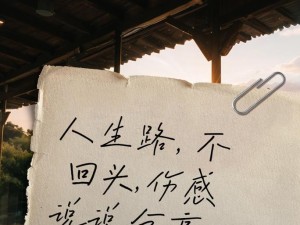 人生路，不
回头，伤感
说说分享